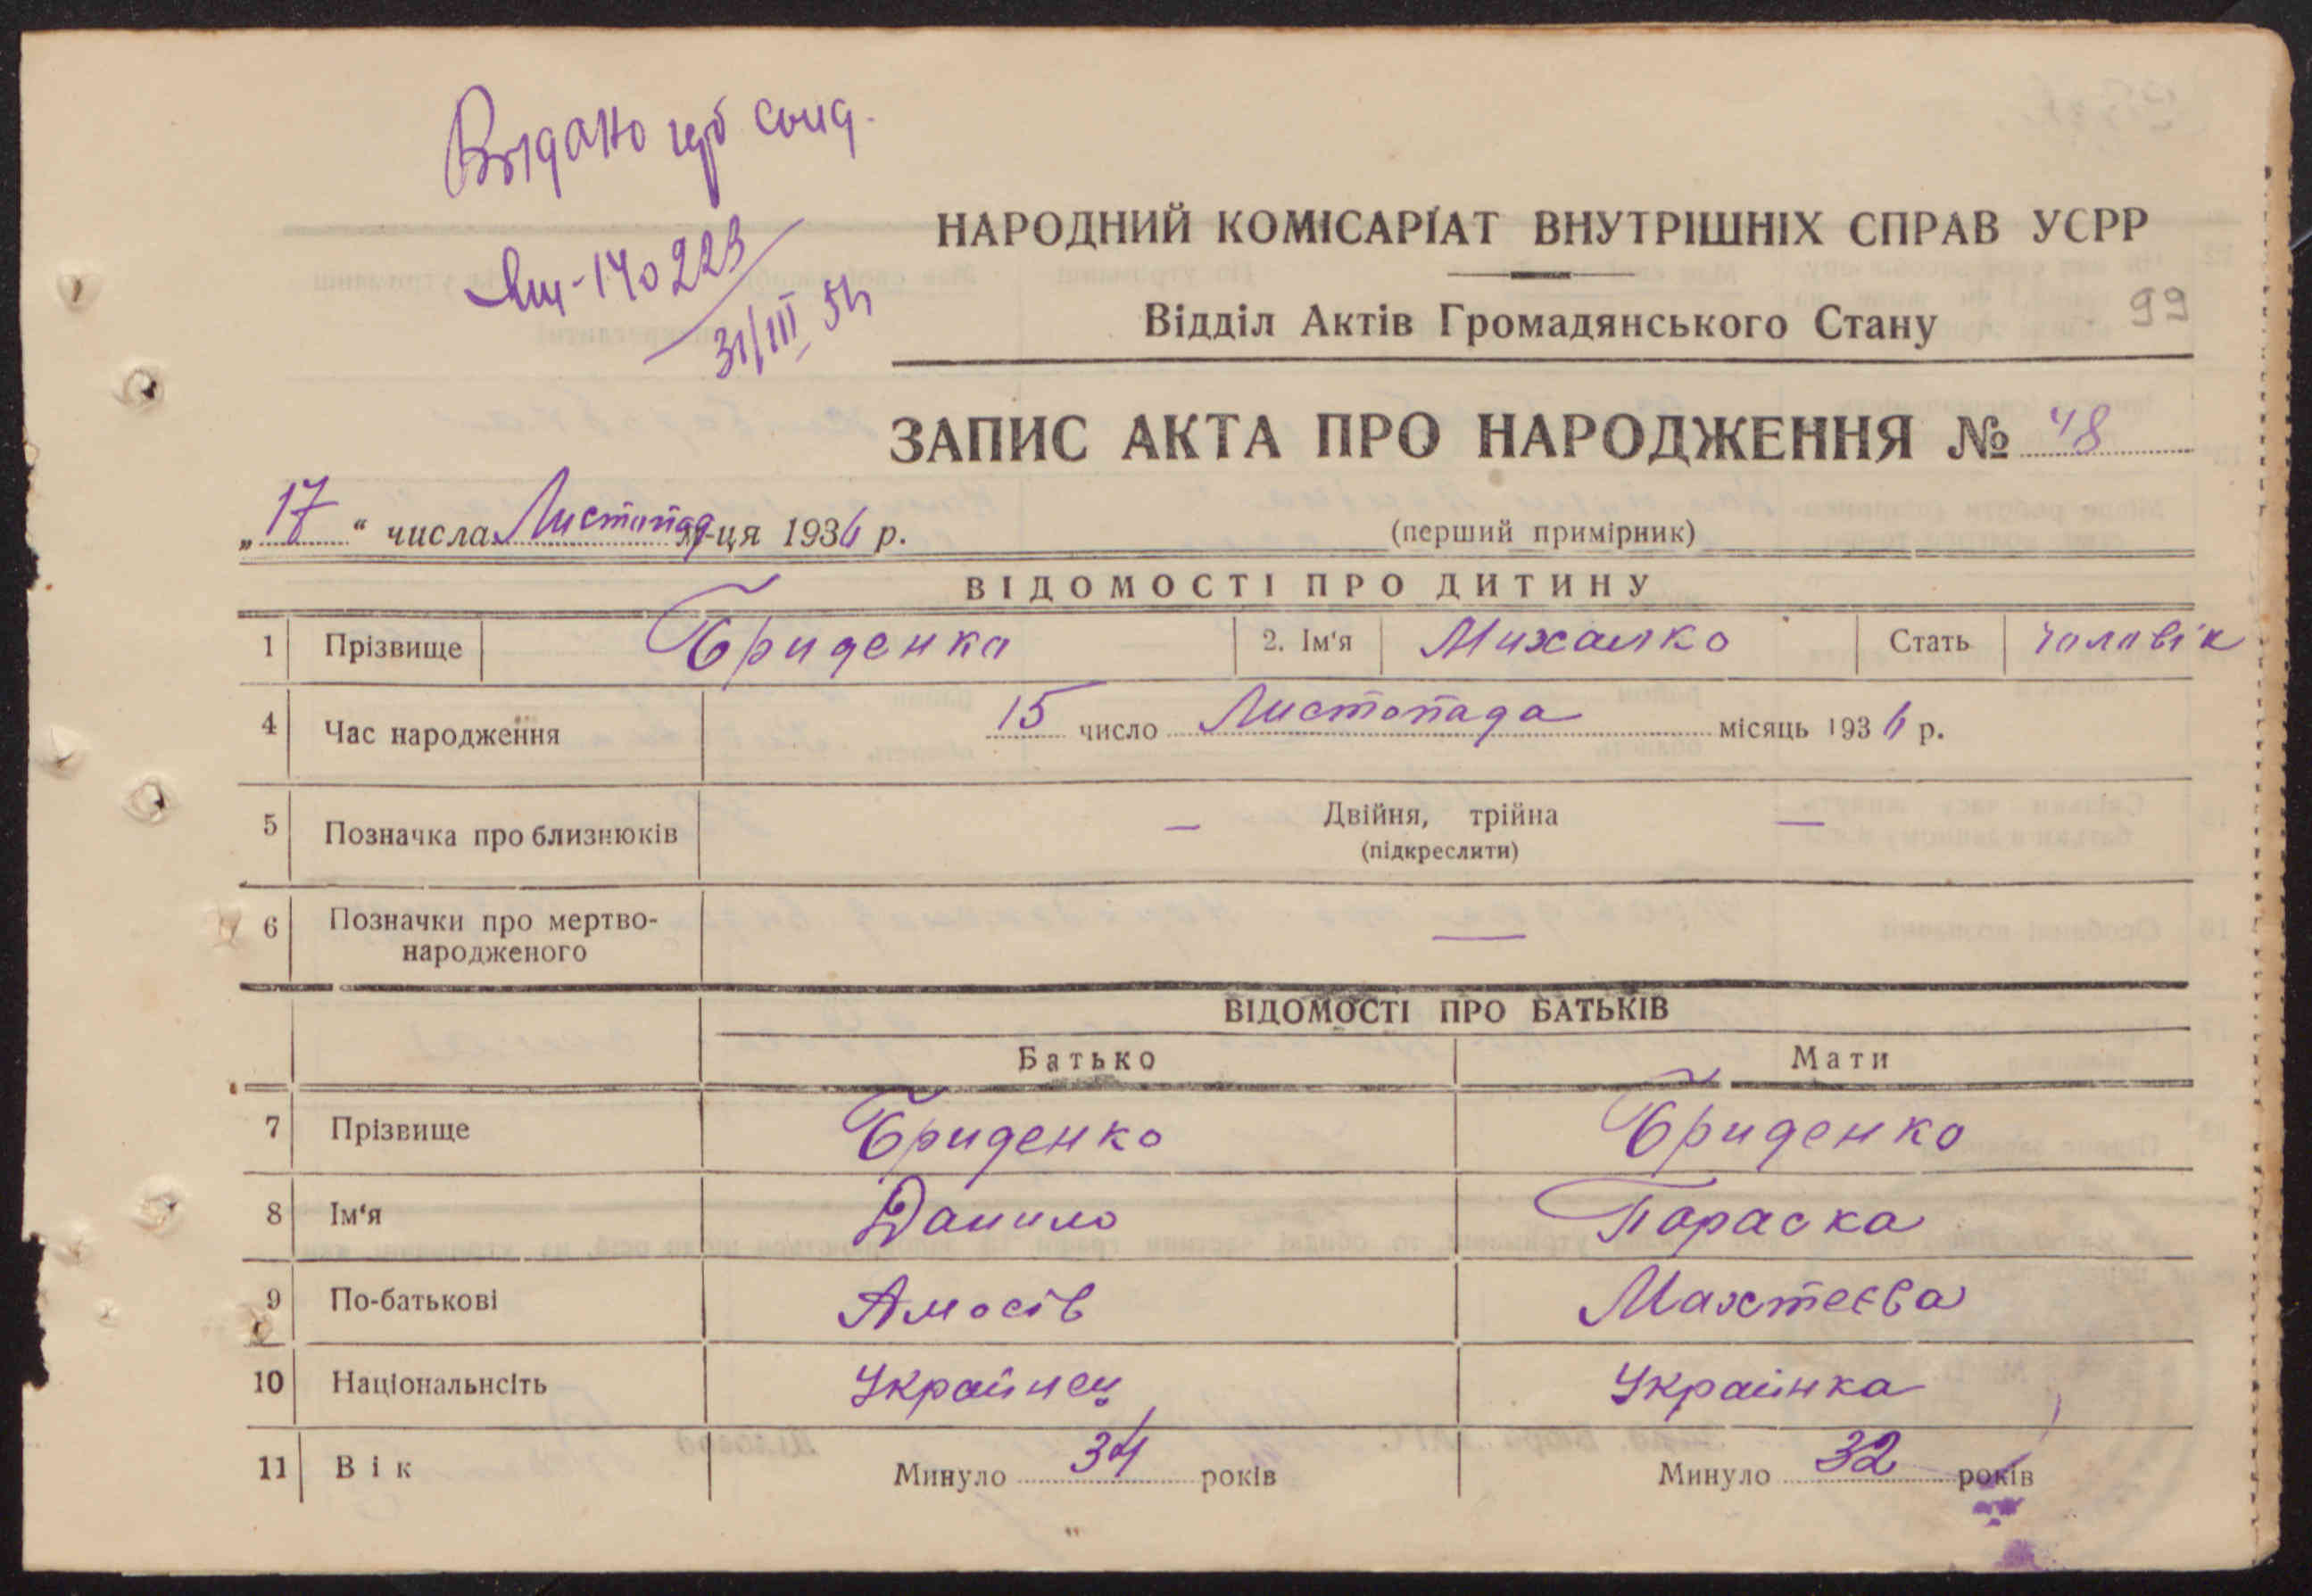 Видано
Ящ-140223
31/III 54
НАРОДНИЙ КОМІСАРІАТ ВНУТРІШНІХ СПРАВ УСРР
Відділ Актів Громадянського Стану 99
ЗАПИС АКТА ПРО НАРОДЖЕННЯ № 48
„17“ числа Листопад м-ця 1936 р. (перший примірник)
ВІДОМОСТІ ПРО ДИТИНУ
1 Прізвище Бриденко 2. Ім'я Михалко Стать чоловік
4 Час народження 15 число Листопада місяць 1936 р.
5 Позначка про близнюків — Двійня, трійна —
(підкреслити)
6 Позначки про мертво-
народженого —
ВІДОМОСТІ ПРО БАТЬКІВ
Батько Мати
7 Прізвище Бриденко Бриденко
8 Ім‘я Данило Параска
9 По-батькові Амосів Махтеєва
10 Національнсіть Українец Українка
11 Вік Минуло 34 років Минуло 32 років